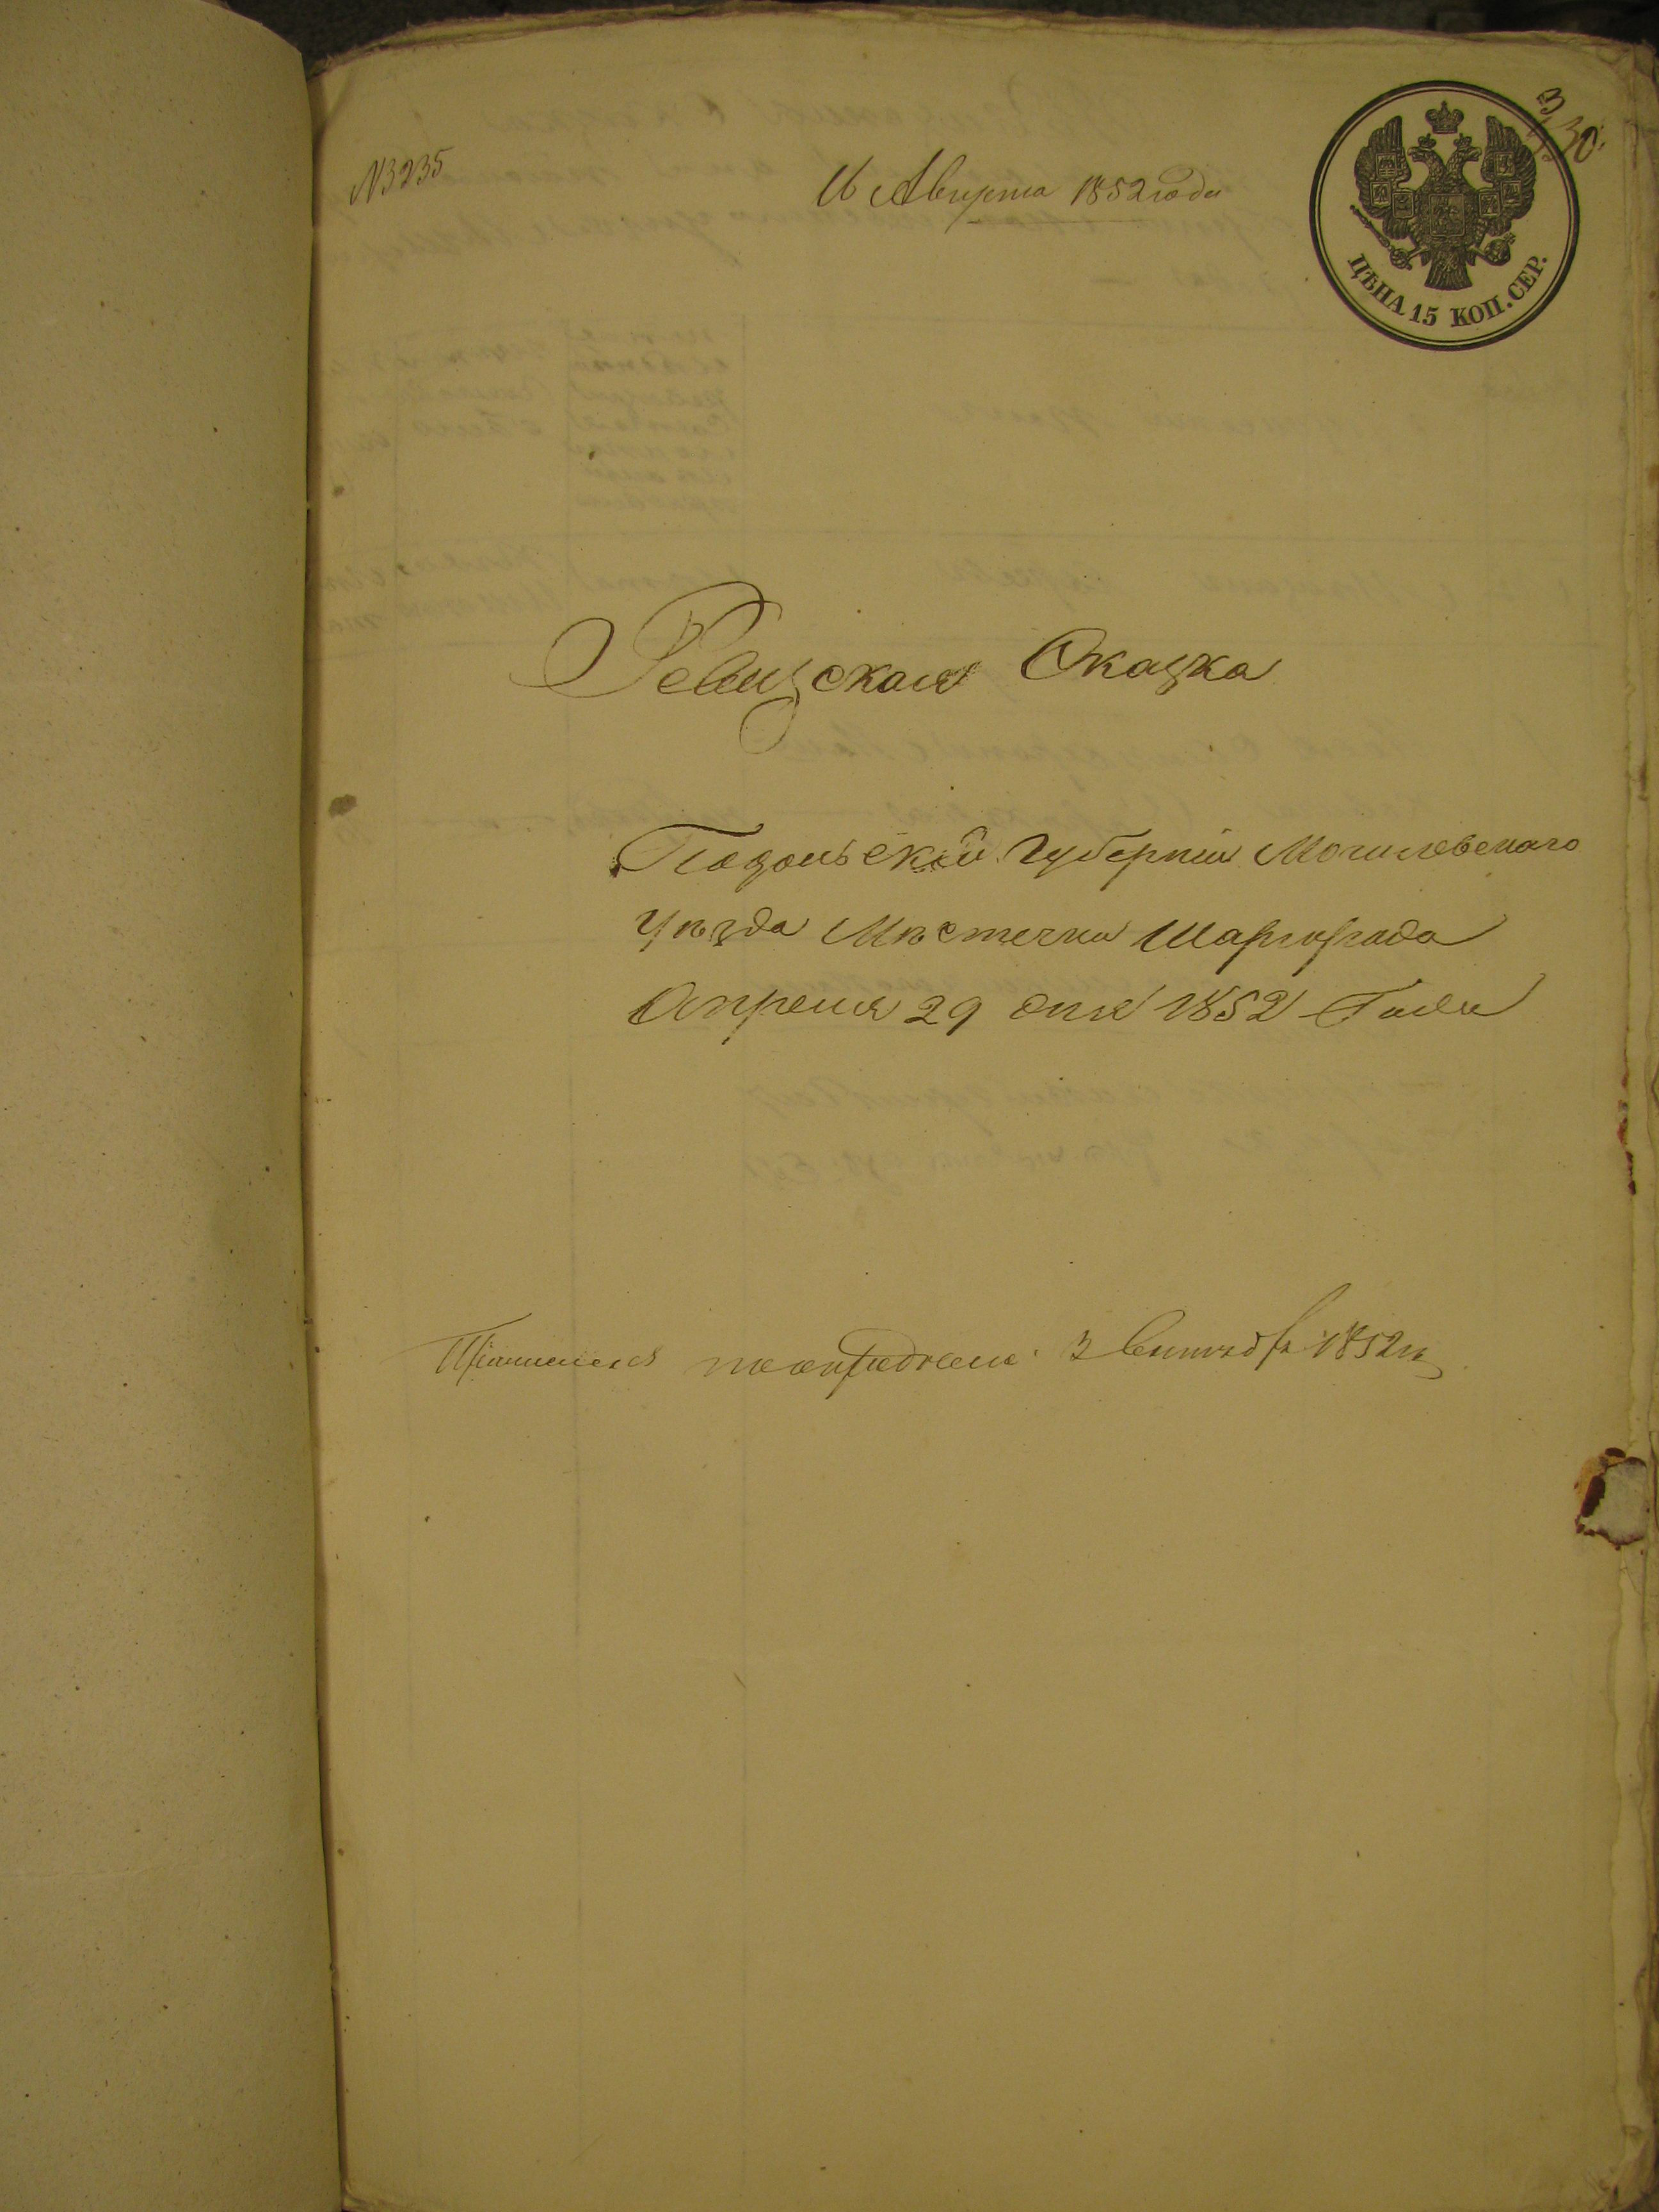 №3235
16 Августа 1852 года
ЦѢНА 15 КОП. СЕР.
Ревизская Сказка
Подольской Губерніи Могилевскаго
Уѣзда Мѣстечка Шаргорода
Апреля 29 дня 1852 Года
3 Сентября 1852 г